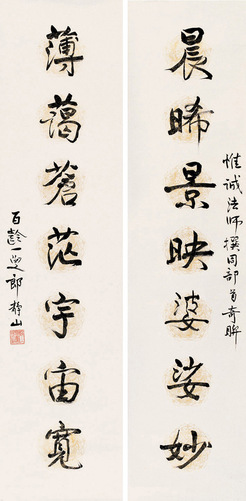 惟誠法师撰同部首奇联
晨晞景映婆娑妙
薄藹蒼茫宇宙寬
百齡一叟郎静山